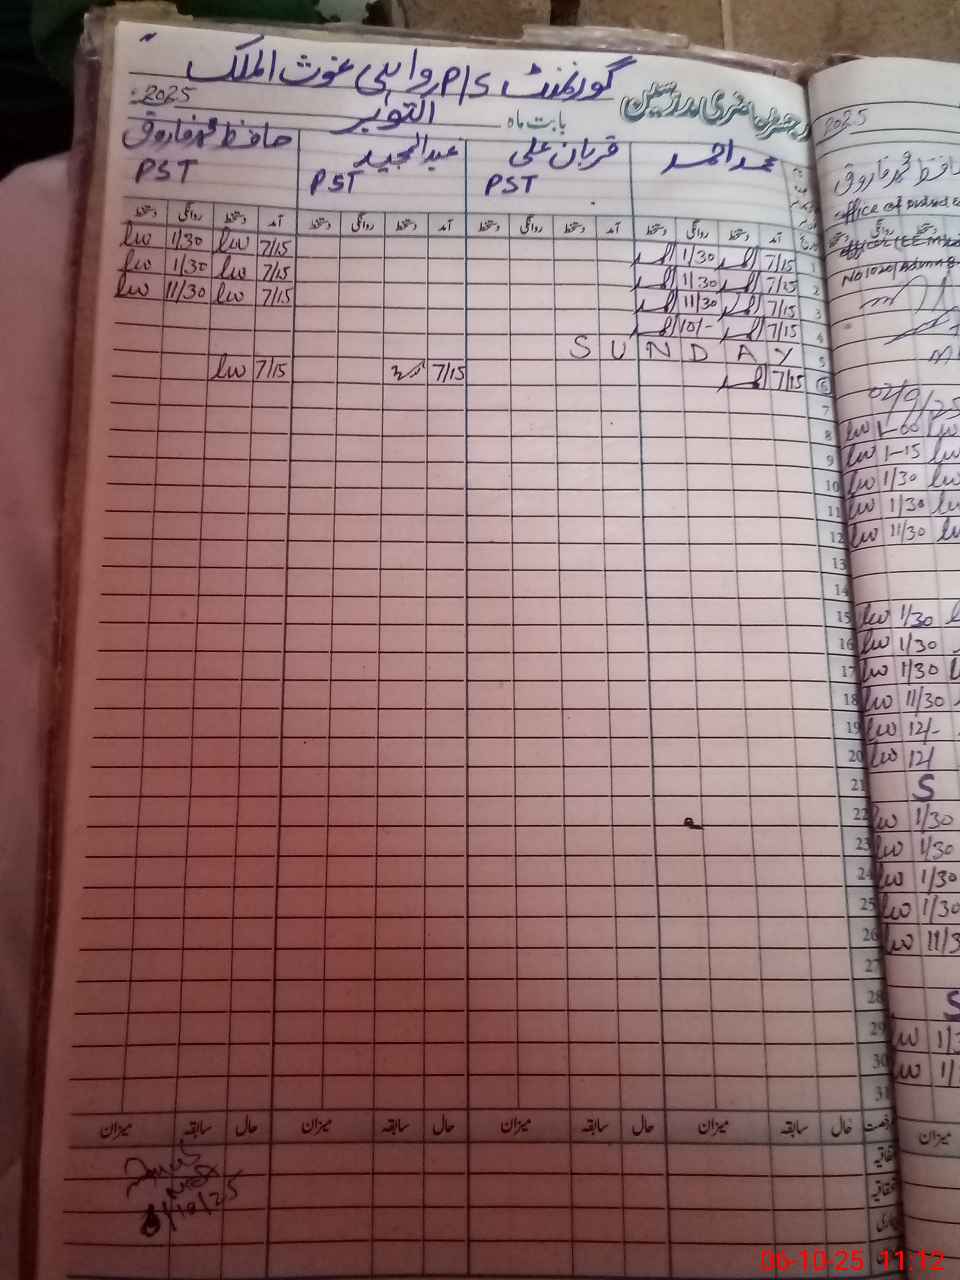 رجسٹر حاضری مدرسین گورنمنٹ P/S رواہی غوث الملک
بابت ماہ اکتوبر 2025
محمد احمد قربان علی عبدالمجید حافظ محمد فاروق
PST PST PST
آمد دستخط روانگی دستخط آمد دستخط روانگی دستخط آمد دستخط روانگی دستخط آمد دستخط روانگی دستخط
1 7/15 1/30 7/15 lw 1/30 lw
2 7/15 1/30 7/15 lw 1/30 lw
3 7/15 11/30 7/15 lw 11/30 lw
4 7/15 10/-
5 SUNDAY
6 7/15 7/15 7/15 lw
7
8
9
10
11
12
13
14
15
16
17
18
19
20
21
22
23
24
25
26
27
28
29
30
31
حال سابقہ میزان حال سابقہ میزان حال سابقہ میزان حال سابقہ میزان
6/10/25
2025
حافظ محمد فاروق
office of
02/9/25
lw 1-00 lw
lw 1-15 lw
lw 1/30 lw
lw 1/30 lw
lw 11/30 lw
lw 1/30
lw 1/30
lw 1/30
lw 11/30
lw 12/-
lw 12/
S
lw 1/30
lw 1/30
lw 1/30
lw 1/30
lw 11/3
S
lw 1/3
lw 1/
میزان
06-10-25 11:12